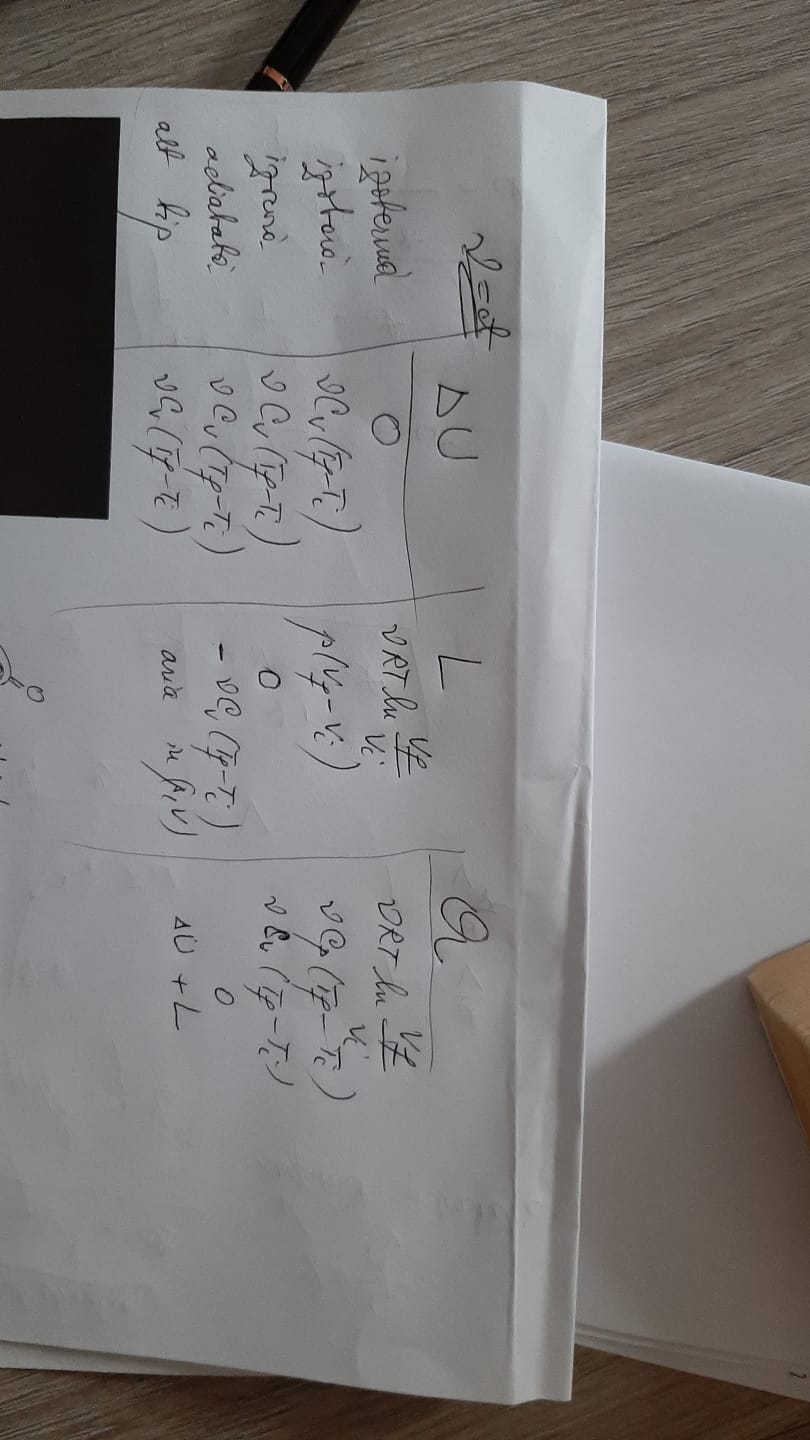 ν = ct
ΔU L Q
izotermă 0 νRT ln Vf/Vi νRT ln Vf/Vi
izobară νCv(Tf-Ti) p(Vf-Vi) νCp(Tf-Ti)
izocoră νCv(Tf-Ti) 0 νCv(Tf-Ti)
adiabată νCv(Tf-Ti) -νCv(Tf-Ti) 0
alt tip νCv(Tf-Ti) aria in (p,V) ΔU + L
O